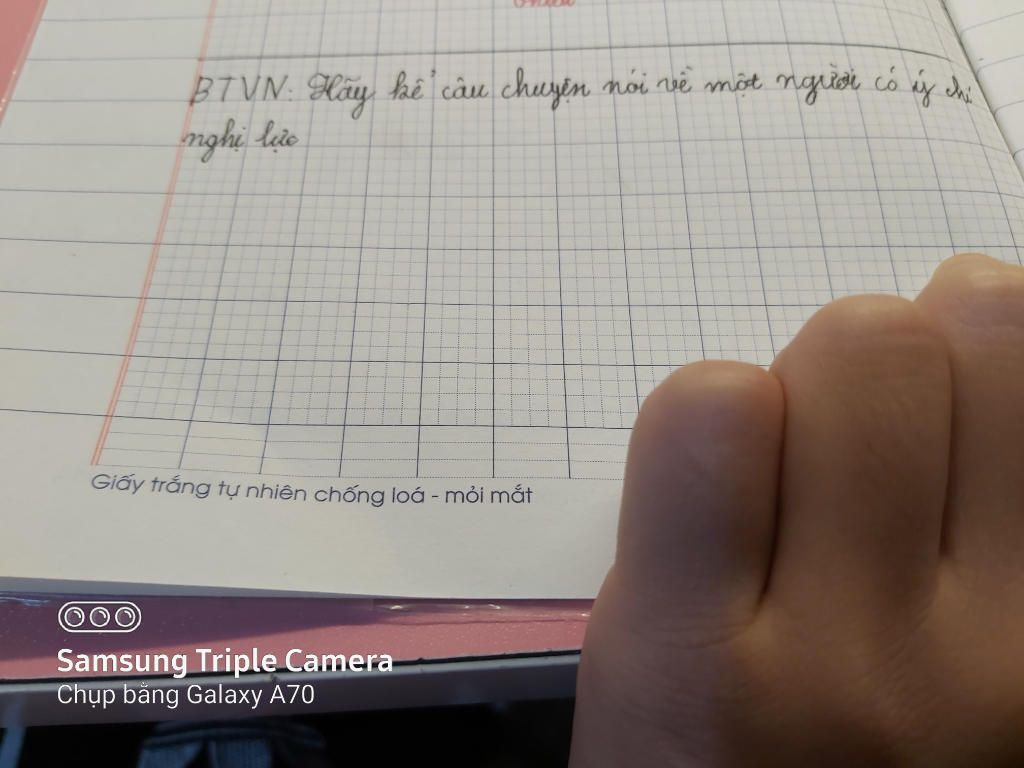 BTVN: Hãy kể câu chuyện nói về một người có ý chí
nghị lực
Giấy trắng tự nhiên chống loá - mỏi mắt
Samsung Triple Camera
Chụp bằng Galaxy A70